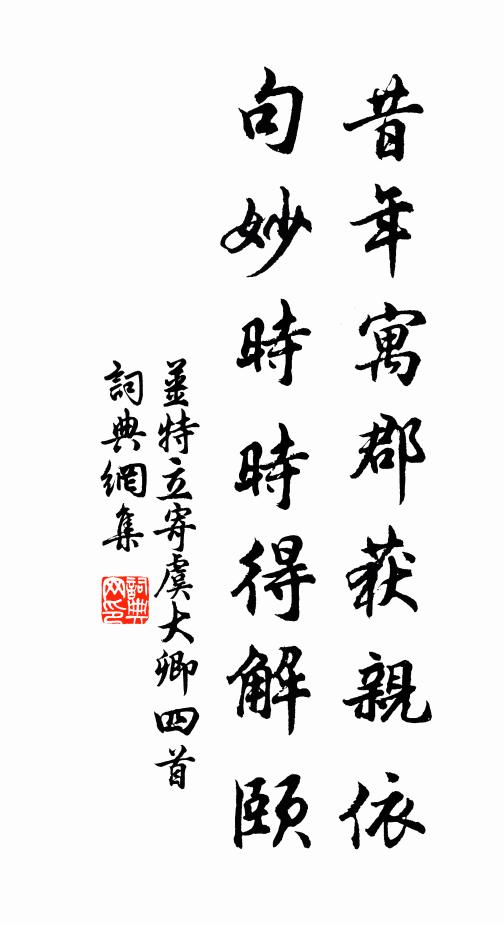 昔年寓郡获親依
句妙時時得解頤
姜特立寄虞大卿四首
詞典網集
詞典
网印